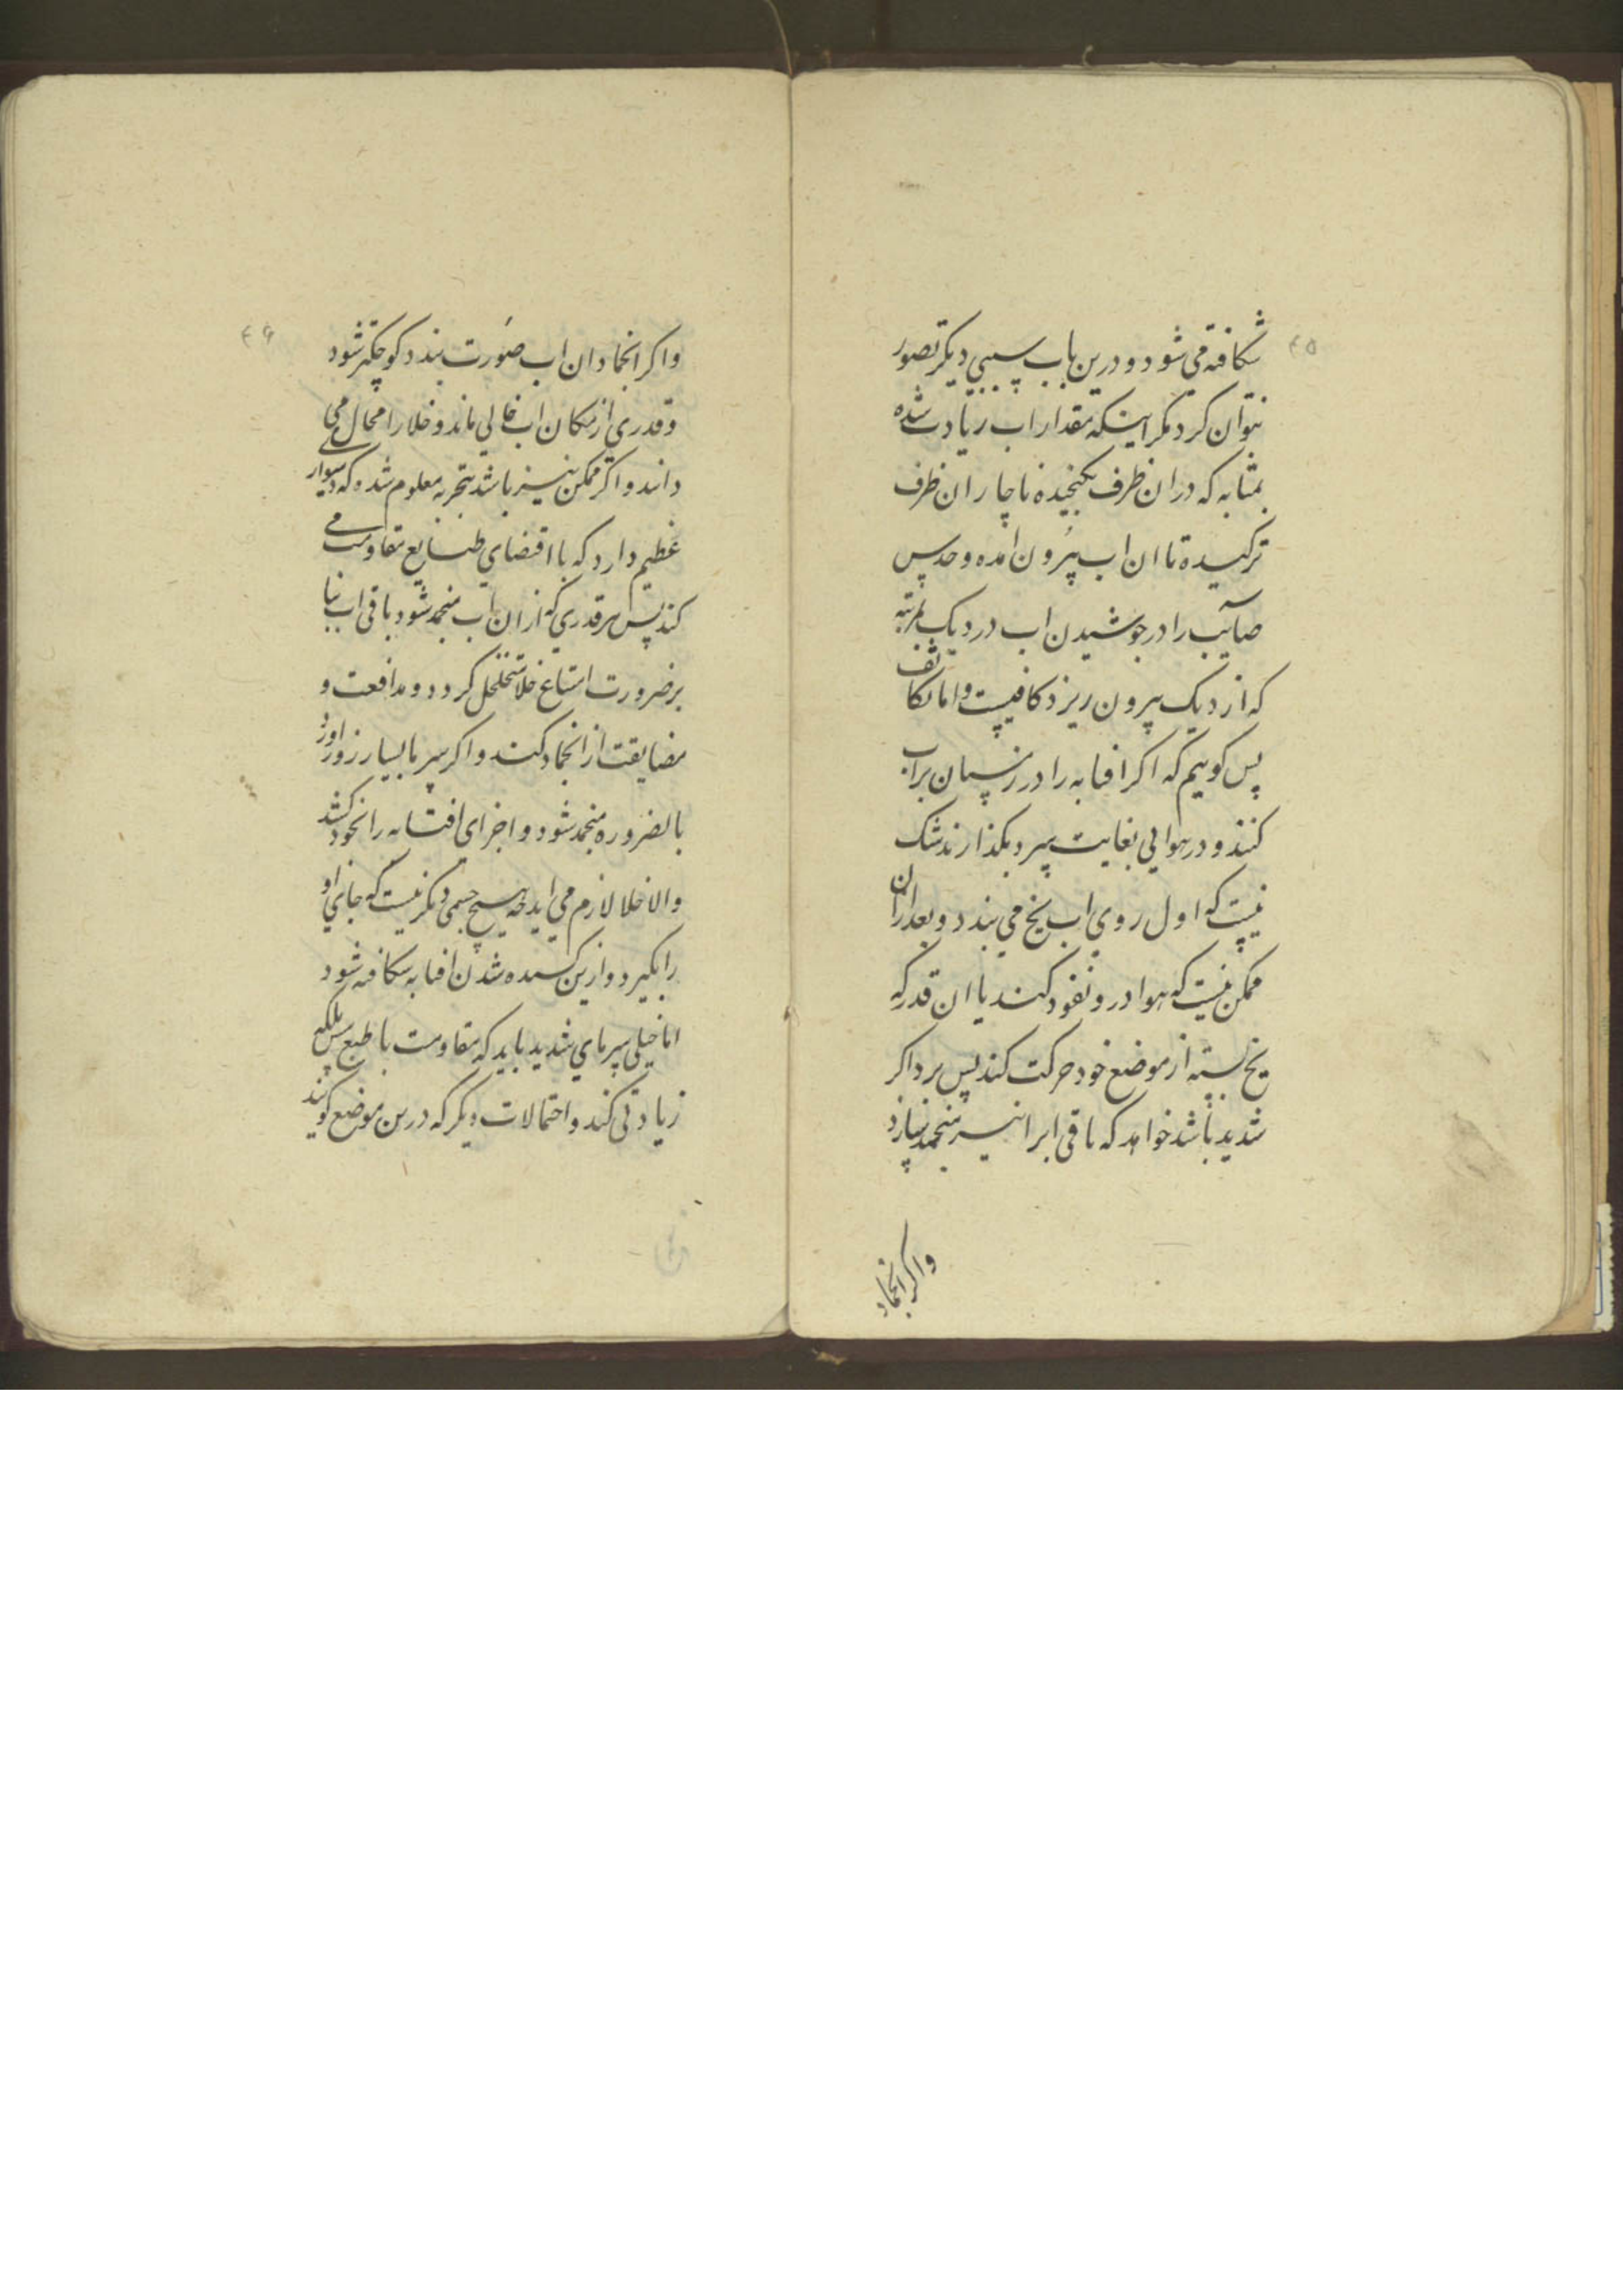 ۴۵
شکافته می شود و درین باب سببی دیگر تصور
نتوان کرد مگر اینکه مقدار اب زیادت شده
بمثابه که در ان ظرف نگنجیده ناچار ان ظرف
ترکیده تا ان اب بیرون امده و حدس
صایب را در جوشیدن اب در دیک بمرتبه
که از دیک بیرون ریزد کافیست و اما تکاثف
پس کوییم که اکر افتابه را در زمستان پر اب
کنند و در هوایی بغایت سرد بکذارند شک
نیست که اول روی اب یخ می بندد و بعد از ان
ممکن نیست که هوا درو نفوذ کند یا ان قدر که
یخ بسته از موضع خود حرکت کند پس برد اکر
شدید باشد خواهد که باقی ابرا نیز منجمد سازد
واکر انجماد
۴۶
و اکر انجماد ان اب صورت بندد کوچکتر شود
و قدری از مکان اب خالی ماند و خلا را محال می
دانند و اکر ممکن نیز باشد بتجربه معلوم شده که دشوار
عظیم دارد که با اقتضای طبایع مقاومت می
کند پس هر قدری که از ان اب منجمد شود باقی اب بنا
بر ضرورت امتناع خلا متخلخل کردد و مدافعت و
مضایقت از انجماد کند و اکر سرما بسیار زور اورد
بالضروره منجمد شود و اجزای افتابه را بخود کشد
والا خلا لازم می اید چه هیچ جسمی دیکر نیست که جای او
را بکیرد و ازین کشیده شدن افتابه شکافته شود
اما خیلی سرمای شدید باید که مقاومت با طبع بلکه
زیادتی کند و احتمالات دیکر که درین موضع کویند